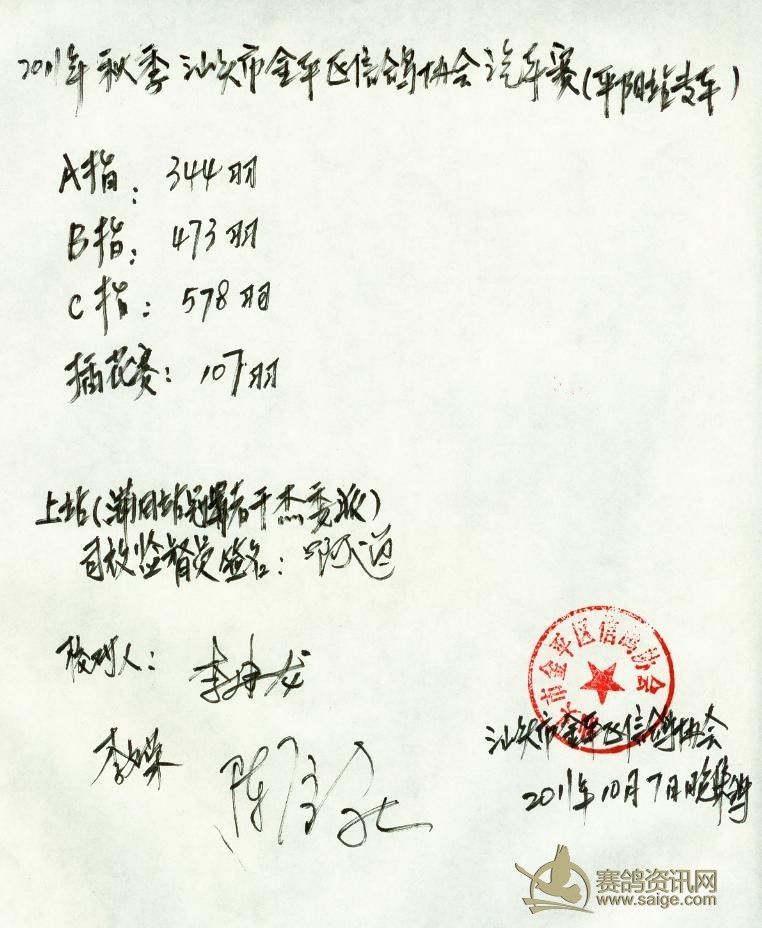 2011年秋季汕头市金平区信鸽协会汽车赛(平阳站专车)
A指: 344羽
B指: 473羽
C指: 578羽
插花赛: 107羽
上站(莆田站冠军者干杰委派)
司放监督员签名:
校对人:
李
陈
市金平区信鸽协会
汕头市金平区信鸽协会
2011年10月7日晚集鸽
赛鸽资讯网
www.saige.com